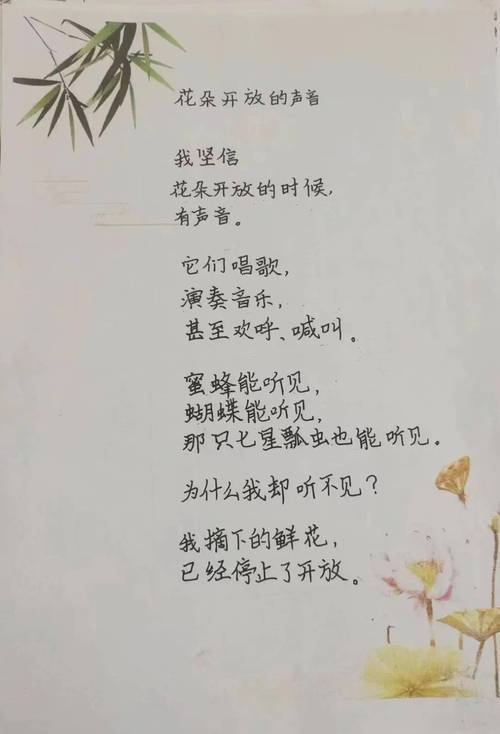 花朵开放的声音
我坚信
花朵开放的时候，
有声音。
它们唱歌，
演奏音乐，
甚至欢呼、喊叫。
蜜蜂能听见，
蝴蝶能听见，
那只七星瓢虫也能听见。
为什么我却听不见？
我摘下的鲜花，
已经停止了开放。